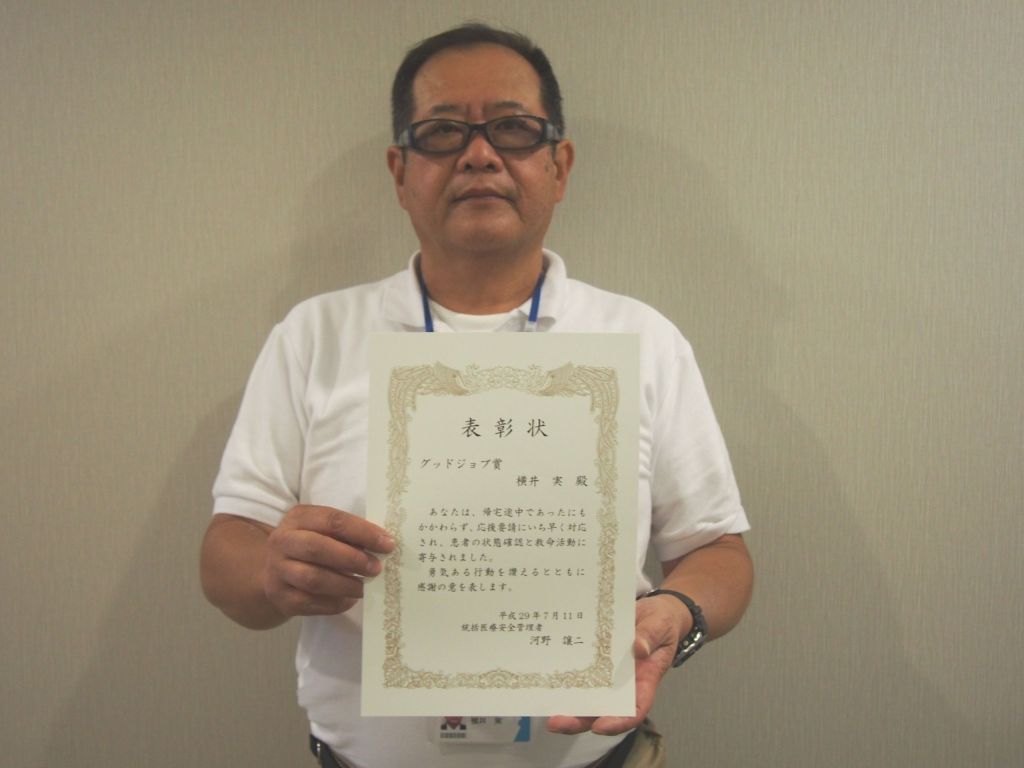 表彰状
グッドジョブ賞
横井 実 殿
あなたは、帰宅途中であったにも
かかわらず、応援要請にいち早く対応
され、患者の状態確認と救命活動に
寄与されました。
勇気ある行動を讃えるとともに
感謝の意を表します。
平成29年7月11日
統括医療安全管理者
河野 譲二
横井 実